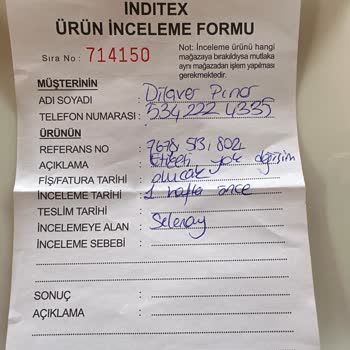 INDITEX
ÜRÜN İNCELEME FORMU
Sıra No : 714150
Not: İnceleme ürünü hangi
mağazaya bırakıldıysa mutlaka
aynı mağazadan işlem yapılması
gerekmektedir.
MÜŞTERİNİN
ADI SOYADI : Dilaver Pınar
TELEFON NUMARASI : 534 222 4335
ÜRÜNÜN
REFERANS NO : 7678, 513, 802
AÇIKLAMA : Etiketi yok değişim
FİŞ/FATURA TARİHİ : olucak
İNCELEME TARİHİ : 1 hafta önce
TESLİM TARİHİ :
İNCELEMEYE ALAN : Selenay
İNCELEME SEBEBİ :
SONUÇ :
AÇIKLAMA :